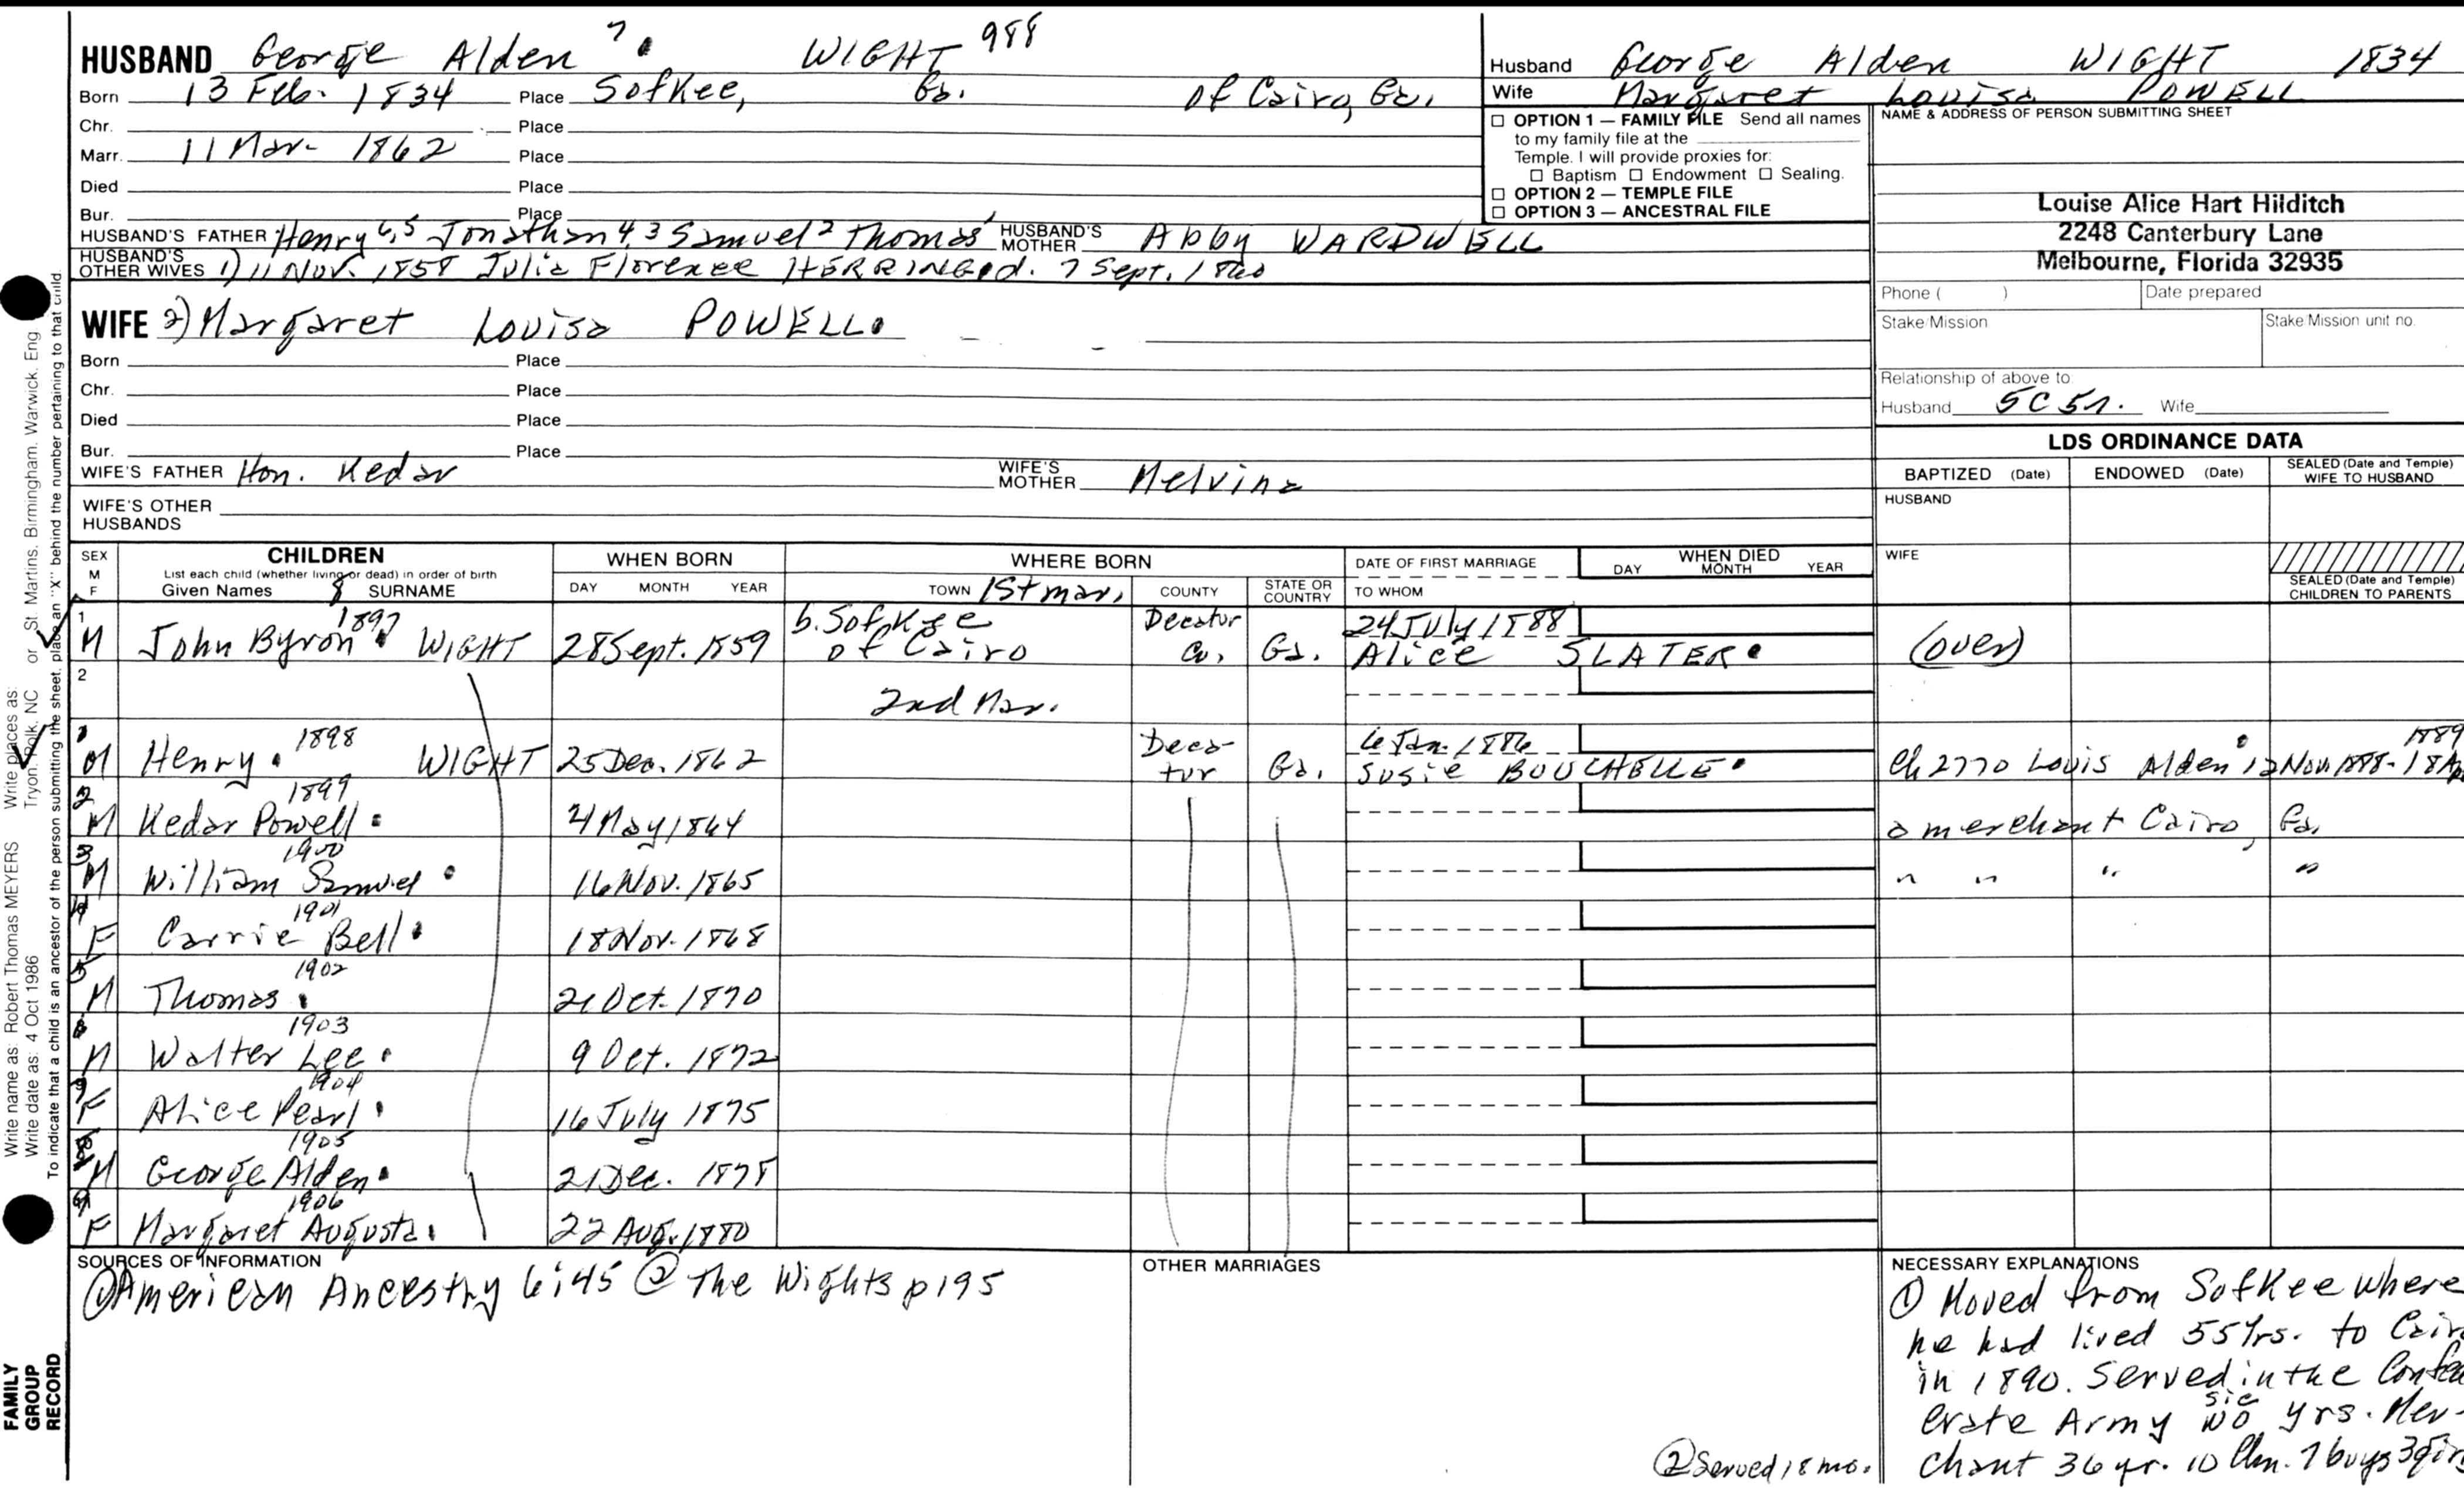 HUSBAND George Alden 7 WIGHT 988
Born 13 Feb. 1834 Place Sofkee, Ga. of Cairo, Ga.
Chr. Place
Marr. 11 Mar- 1862 Place
Died Place
Bur. Place
HUSBAND'S FATHER Henry 6,5 Jonathan 4,3 Samuel 2 Thomas 1 HUSBAND'S MOTHER Abby WARDWELL
HUSBAND'S OTHER WIVES 1) 11 Nov. 1858 Julia Florence HERRING d. 7 Sept. 1860
WIFE 2) Margaret Louisa POWELL
Born Place
Chr. Place
Died Place
Bur. Place
WIFE'S FATHER Hon. Kedar WIFE'S MOTHER Melvina
WIFE'S OTHER HUSBANDS
Husband George Alden WIGHT 1834
Wife Margaret Louisa POWELL
☐ OPTION 1 — FAMILY FILE Send all names
to my family file at the
Temple. I will provide proxies for:
☐ Baptism ☐ Endowment ☐ Sealing.
☐ OPTION 2 — TEMPLE FILE
☐ OPTION 3 — ANCESTRAL FILE
NAME & ADDRESS OF PERSON SUBMITTING SHEET
Louise Alice Hart Hilditch
2248 Canterbury Lane
Melbourne, Florida 32935
Phone ( ) Date prepared
Stake/Mission Stake/Mission unit no.
Relationship of above to:
Husband 5C5r. Wife
LDS ORDINANCE DATA
BAPTIZED (Date) ENDOWED (Date) SEALED (Date and Temple) WIFE TO HUSBAND
HUSBAND
WIFE
SEALED (Date and Temple) CHILDREN TO PARENTS
SEX M F
CHILDREN
List each child (whether living or dead) in order of birth
Given Names 8 SURNAME
WHEN BORN
DAY MONTH YEAR
WHERE BORN
TOWN 1st mar. COUNTY STATE OR COUNTRY
DATE OF FIRST MARRIAGE
TO WHOM
WHEN DIED
DAY MONTH YEAR
1 M John Byron 1897 WIGHT 28 Sept. 1859 b. Sofkee of Cairo Decatur Co. Ga. 24 July 1888 Alice SLATER (over)
2 2nd Mar.
1 M Henry 1898 WIGHT 25 Dec. 1862 Decatur Ga. 6 Jan. 1886 Susie BOUCHELLE Ch 2770 Louis Alden 12 Nov 1888- 18 Ap 1889
2 M Kedar Powell 1899 4 May 1864 a merchant Cairo, Ga.
3 M William Samuel 1900 16 Nov. 1865 " " " "
4 F Carrie Bell 1901 18 Nov. 1868
5 M Thomas 1902 21 Oct. 1870
6 M Walter Lee 1903 9 Oct. 1872
7 F Alice Pearl 1904 16 July 1875
8 M George Alden 1905 21 Dec. 1878
9 F Margaret Augusta 1906 22 Aug. 1880
SOURCES OF INFORMATION
① American Ancestry 6:45 ② The Wights p195
OTHER MARRIAGES
② Served 18 mo.
NECESSARY EXPLANATIONS
① Moved from Sofkee where
he had lived 55 yrs. to Cair
in 1890. Served in the Confed
erate Army wo sic yrs. Mer-
chant 36 yr. 10 Chn. 7 boys 3 girls
Write name as: Robert Thomas MEYERS Write places as: Tryon, Polk, NC or St. Martins, Birmingham, Warwick, Eng
Write date as: 4 Oct 1986
To indicate that a child is an ancestor of the person submitting the sheet, place an "X" behind the number pertaining to that child
FAMILY
GROUP
RECORD